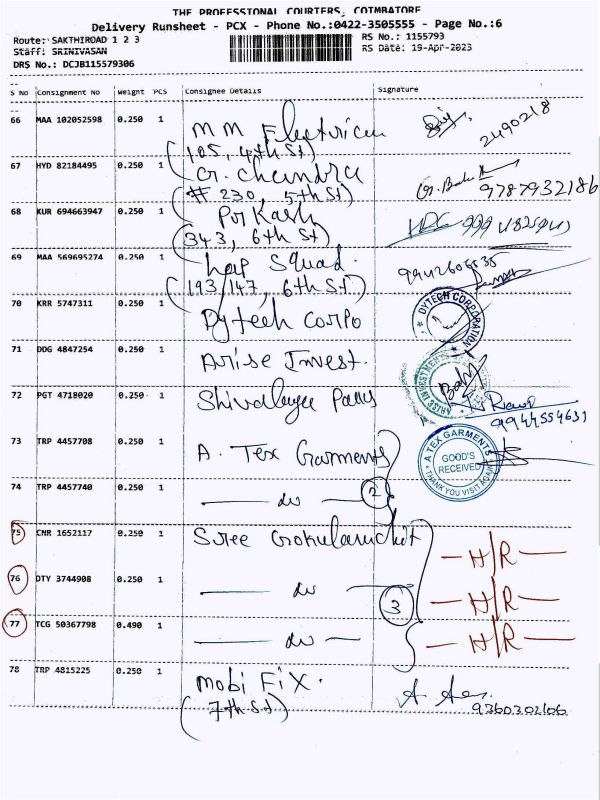 THE PROFESSIONAL COURIERS, COIMBATORE
Delivery Runsheet - PCX - Phone No.:0422-3505555 - Page No.:6
Route: SAKTHIROAD 1 2 3
RS No.: 1155793
Staff: SRINIVASAN
RS Date: 19-Apr-2023
DRS No.: DCJB115579306
S No Consignment No Weight PCS Consignee Details Signature
66 MAA 102052598 0.250 1 MM Electrical
2490218
(105, 4th St)
67 HYD 82184495 0.250 1 G. Chandra
9787932186
(# 230, 5th St)
68 KUR 694663947 0.250 1 Porkash
(343, 6th St)
69 MAA 569695274 0.250 1 Lap Squad.
(193/147, 6th St)
70 KRR 5747311 0.250 1 Dytech Corpo
DYTECH CORPORATION
71 DDG 4847254 0.250 1 Arise Invest.
ARISE INVESTMENTS
72 PGT 4718020 0.250 1
9944554631
73 TRP 4457708 0.250 1 A. Tex Garments
A TEX GARMENTS
GOOD'S
RECEIVED
THANK YOU VISIT AGAIN
74 TRP 4457740 0.250 1 do 2
75 CNR 1652117 0.250 1 Sree Gokulamchit
N/R
76 DTY 3744908 0.250 1 do 3
N/R
77 TCG 50367798 0.490 1 do
N/R
78 TRP 4815225 0.250 1 Mobi Fix.
(7th St)
9360302106